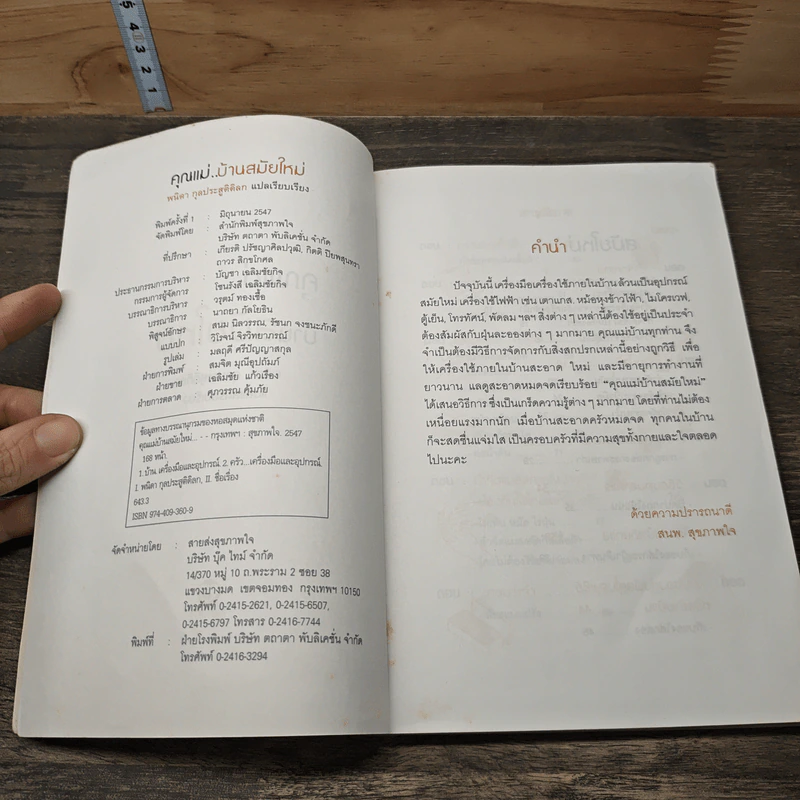 5 4 3 2 1
คุณแม่..บ้านสมัยใหม่
พนิดา กุลประสูติดิลก แปลเรียบเรียง
พิมพ์ครั้งที่ 1 : มิถุนายน 2547
จัดพิมพ์โดย : สำนักพิมพ์สุขภาพใจ
บริษัท ตถาตา พับลิเคชั่น จำกัด
ที่ปรึกษา : เกียรติ ปรัชญาศิลปวุฒิ, กิตติ ปิยพสุนทรา
ถาวร สิกขโกศล
ประธานกรรมการบริหาร : บัญชา เฉลิมชัยกิจ
กรรมการผู้จัดการ : โชนรังสี เฉลิมชัยกิจ
บรรณาธิการบริหาร : วรุฒม์ ทองเชื้อ
บรรณาธิการ : นาถยา กัลโยธิน
พิสูจน์อักษร : สนม นิลวรรณ, รัชนก จงชนะภักดี
แบบปก : วิโรจน์ จิรวิทยาภรณ์
รูปเล่ม : มลฤดี ศรีปัญญาสกุล
ฝ่ายการพิมพ์ : สมจิต มุณีอุปถัมภ์
ฝ่ายขาย : เฉลิมชัย แก้วเรือง
ฝ่ายการตลาด : ศุภวรรณ คุ้มภัย
ข้อมูลทางบรรณานุกรมของหอสมุดแห่งชาติ
คุณแม่บ้านสมัยใหม่... - - กรุงเทพฯ : สุขภาพใจ, 2547
168 หน้า.
1. บ้าน...เครื่องมือและอุปกรณ์. 2. ครัว...เครื่องมือและอุปกรณ์.
I. พนิดา กุลประสูติดิลก, II. ชื่อเรื่อง
643.3
ISBN 974-409-360-9
จัดจำหน่ายโดย : สายส่งสุขภาพใจ
บริษัท บุ๊ค ไทม์ จำกัด
14/370 หมู่ 10 ถ.พระราม 2 ซอย 38
แขวงบางมด เขตจอมทอง กรุงเทพฯ 10150
โทรศัพท์ 0-2415-2621, 0-2415-6507,
0-2415-6797 โทรสาร 0-2416-7744
พิมพ์ที่ : ฝ่ายโรงพิมพ์ บริษัท ตถาตา พับลิเคชั่น จำกัด
โทรศัพท์ 0-2416-3294
คำนำ
ปัจจุบันนี้ เครื่องมือเครื่องใช้ภายในบ้าน ล้วนเป็นอุปกรณ์
สมัยใหม่ เครื่องใช้ไฟฟ้า เช่น เตาแกส, หม้อหุงข้าวไฟฟ้า, ไมโครเวฟ,
ตู้เย็น, โทรทัศน์, พัดลม ฯลฯ สิ่งต่าง ๆ เหล่านี้ต้องใช้อยู่เป็นประจำ
ต้องสัมผัสกับฝุ่นละอองต่าง ๆ มากมาย คุณแม่บ้านทุกท่าน จึง
จำเป็นต้องมีวิธีการจัดการกับสิ่งสกปรกเหล่านี้อย่างถูกวิธี เพื่อ
ให้เครื่องใช้ภายในบ้านสะอาด ใหม่ และมีอายุการทำงานที่
ยาวนาน แลดูสะอาดหมดจดเรียบร้อย “คุณแม่บ้านสมัยใหม่”
ได้เสนอวิธีการ ซึ่งเป็นเกร็ดความรู้ต่าง ๆ มากมาย โดยที่ท่านไม่ต้อง
เหนื่อยแรงมากนัก เมื่อบ้านสะอาดครัวหมดจด ทุกคนในบ้าน
ก็จะสดชื่นแจ่มใส เป็นครอบครัวที่มีความสุขทั้งกายและใจตลอด
ไปนะคะ
ด้วยความปรารถนาดี
สนพ. สุขภาพใจ